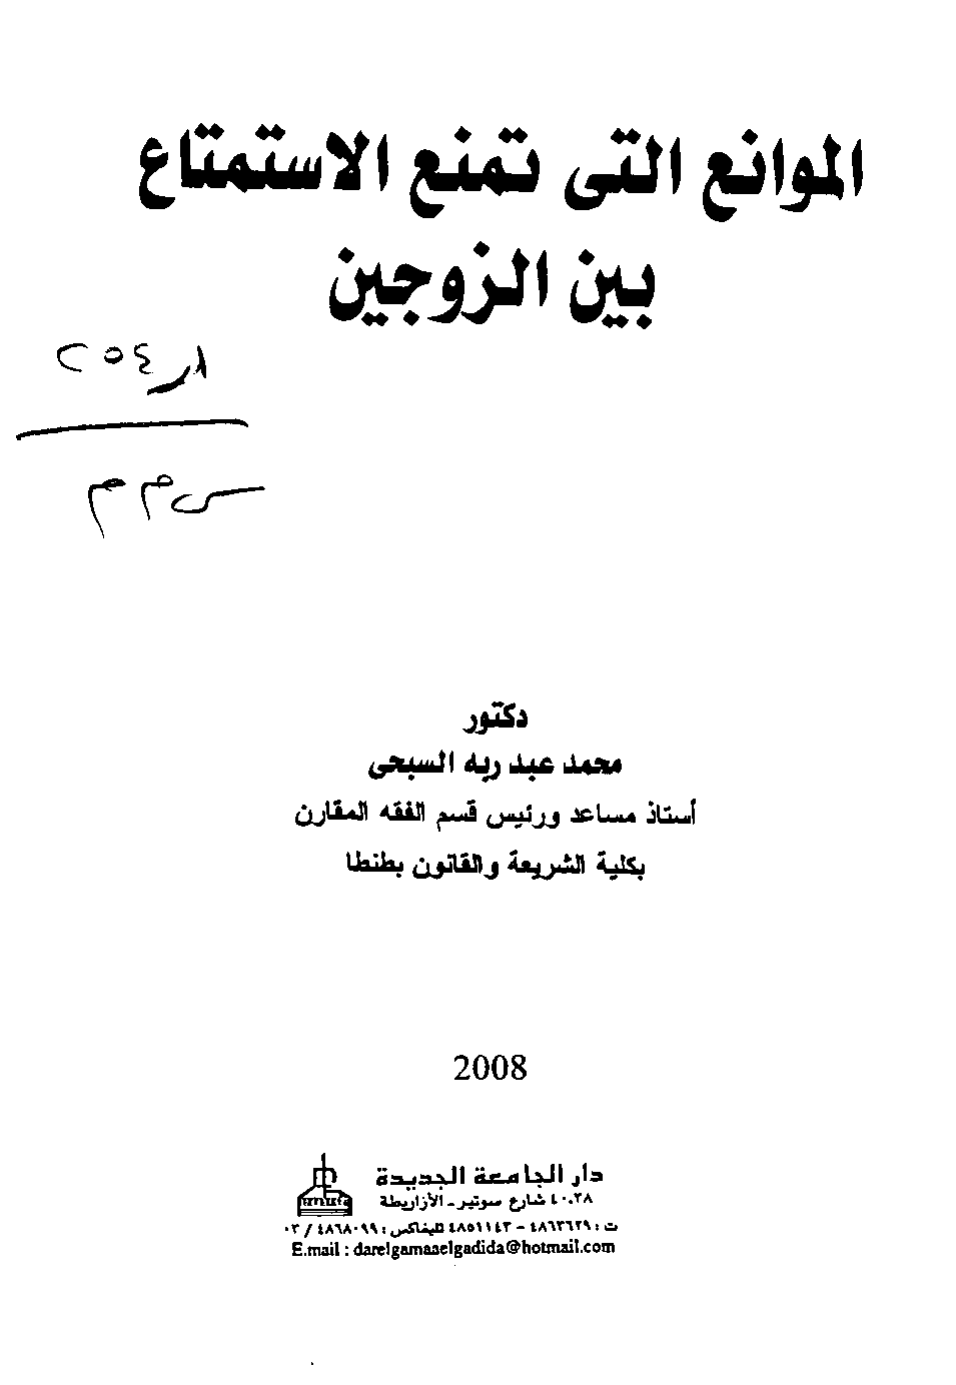 الموانع التى تمنع الاستمتاع
بين الزوجين
س م م
دكتور
محمد عبد ربه السبحى
أستاذ مساعد ورئيس قسم الفقه المقارن
بكلية الشريعة والقانون بطنطا
2008
دار الجامعة الجديدة
٤٠،٣٨ شارع سوتير - الأزاريطة
ت : ٤٨٦٣٦٢٩ - ٤٨٥١١٤٣ تليفاكس : ٤٨٦٨٠٩٩ / ٠٣
E.mail : darelgamaaelgadida@hotmail.com